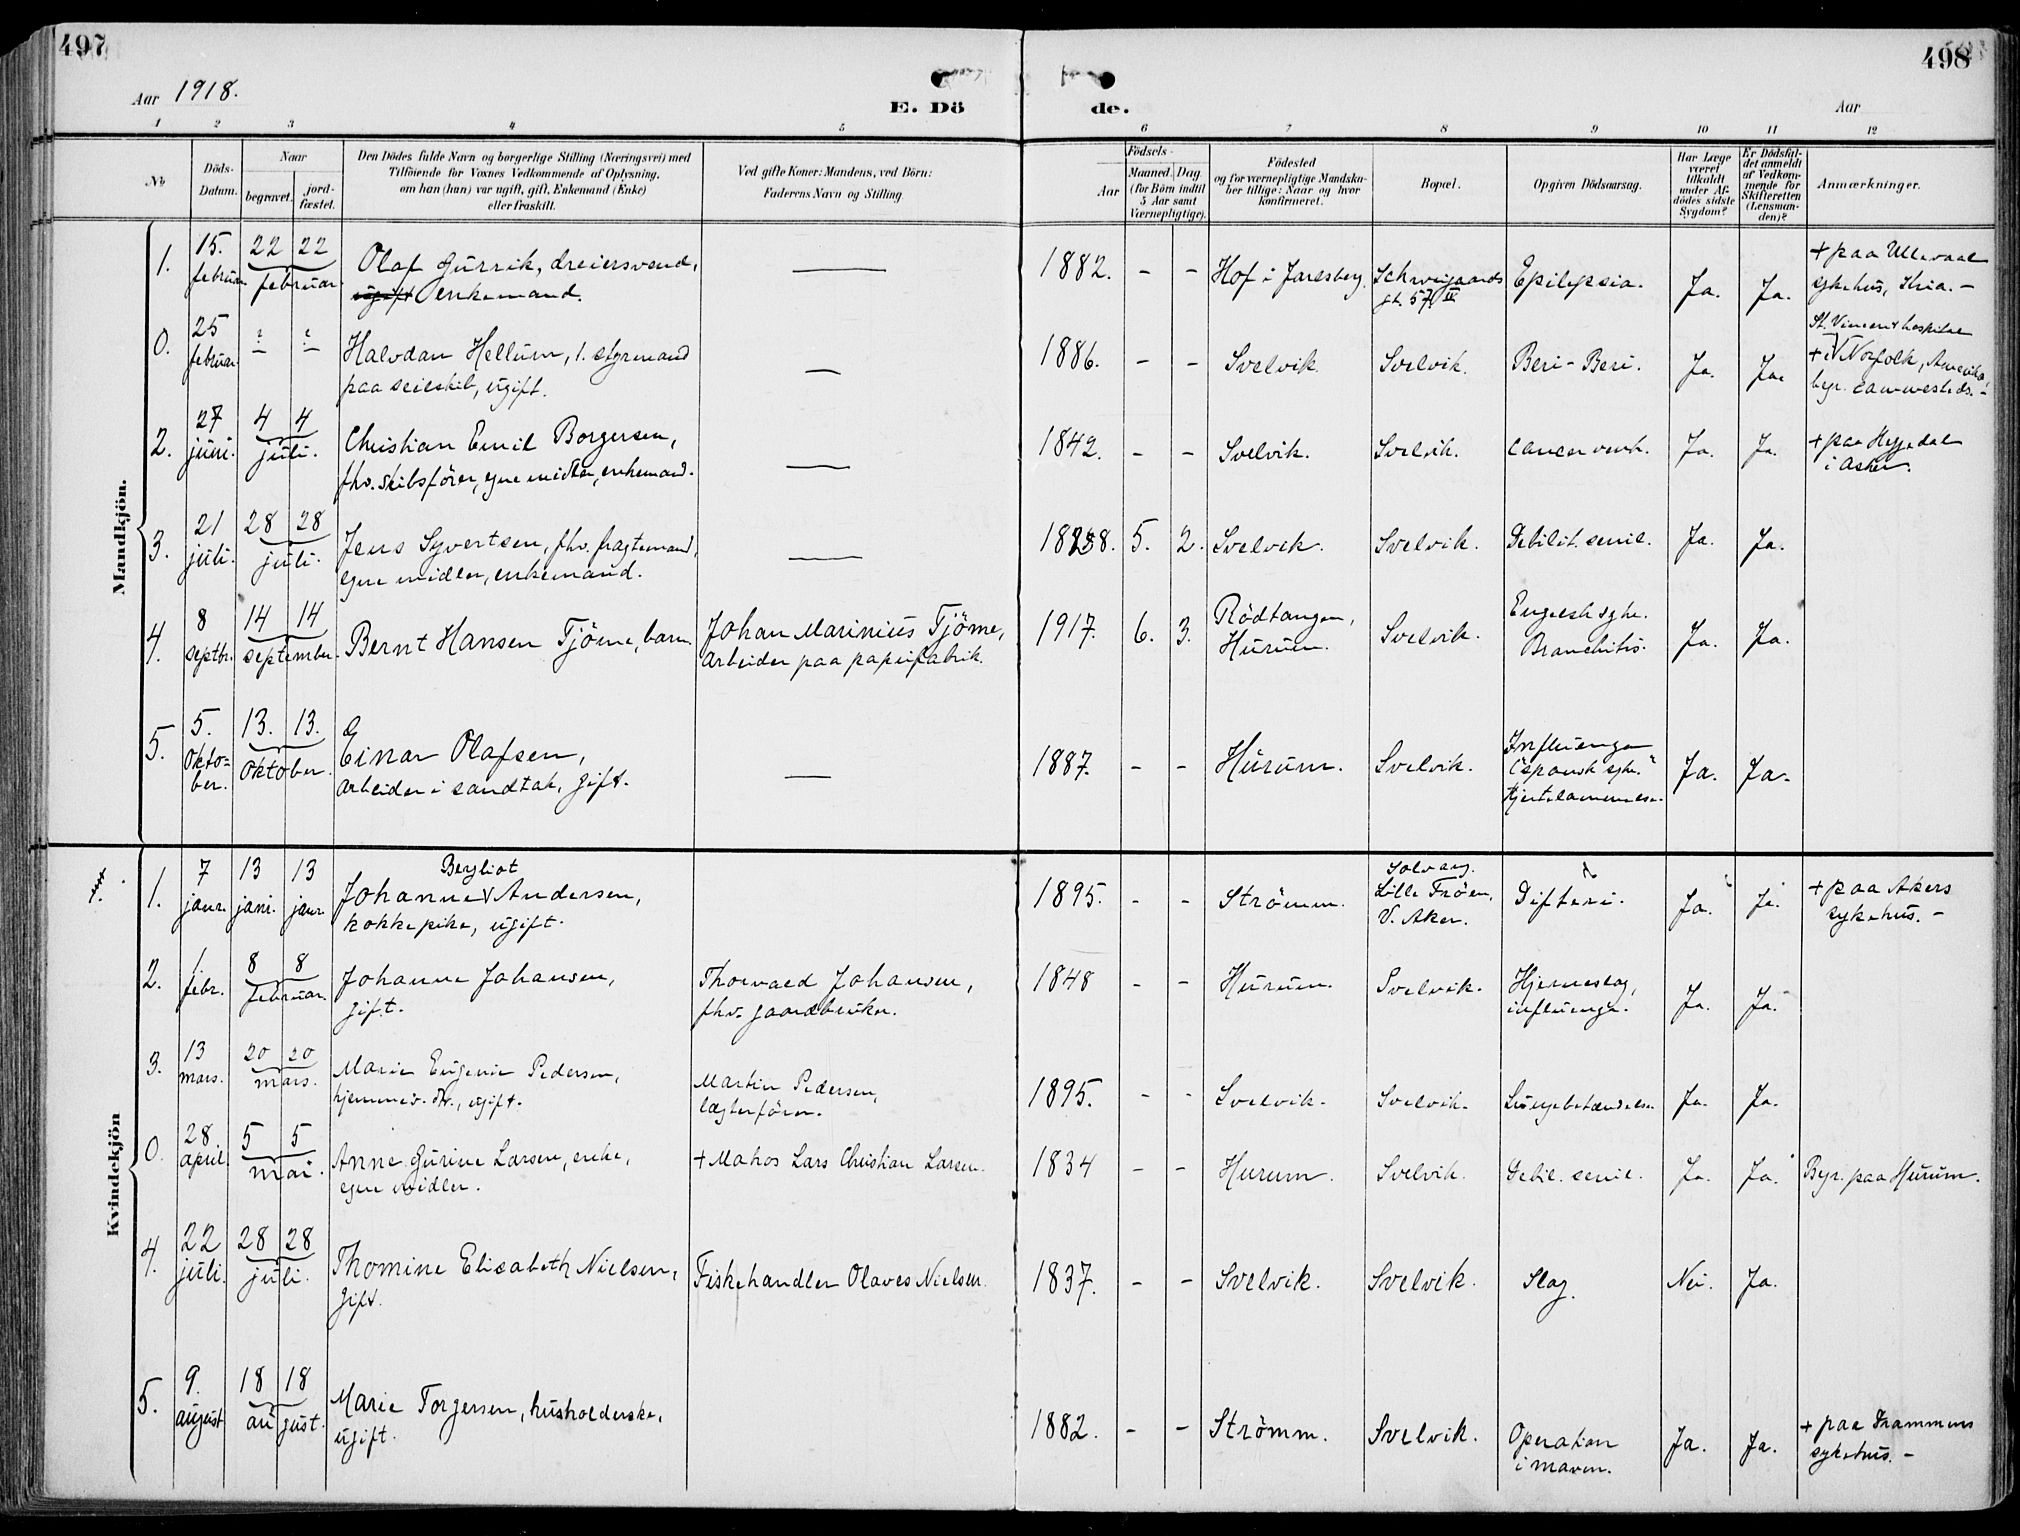 497
498
Aar 1918.
E. Dö
de.
Aar
1 2 3 4 5 6 7 8 9 10 11 12
No
Döds-
Datum.
Naar
begravet.
jord-
fæstet.
Den Dödes fulde Navn og borgerlige Stilling (Næringsvei) med
Tilföiende for Voxnes Vedkommende af Oplysning,
om han (hun) var ugift, gift, Enkemand (Enke)
eller fraskilt.
Ved gifte Koner: Mandens, ved Börn:
Faderens Navn og Stilling
Födsels-
Aar
Maaned. Dag.
(for Börn indtil
5 Aar samt
Værnepligtige).
Födested
og for værnepligtige Mandskaber tillige: Naar og hvor
Konfirmeret.
Bopæl.
Opgiven Dödsaarsag.
Har Læge
været
tilkaldt
under Af-
dödes sidste
Sygdom?
Er Dödsfal-
det anmeldt
af Vedkom-
mende for
Skifteretten
(Lensman-
den)?
Anmærkninger.
Mandkjön.
1. 15. februar 22 22 februar
Olaf Gurrik, dreiersvend,
ugift enkemand.
1882. - - Hof i Jarlsberg. Schweigaards
gt. 57 IV
Epilepsia. Ja. Ja.
+ paa Ullevaal
sykehus, Kria. -
0. 25 februar ? ?
Halvdan Hellum, 1. styrmand
paa seilskib, ugift.
1886. - - Svelvik. Svelvik. Beri-Beri. Ja. Ja.
St. Vincent hospital
+ i Norfolk, Amerika,
begr. sammesteds. -
2. 27 juni. 4 4 juli.
Christian Emil Borgersen,
fhv. skibsförer, egne midler, enkemand.
1842. - - Svelvik. Svelvik. cancer ventr. Ja. Ja.
+ paa Heggedal
i Asker.
3. 21 juli. 28 28 juli.
Jens Syvertsen, fhv. fragtemand,
egne midler, enkemand.
1838. 5. 2. Svelvik. Svelvik. Debilit. senil. Ja. Ja.
4. 8 septbr. 14 14 september.
Bernt Hansen Tjöme, barn.
Johan Marinius Tjöme,
Arbeider paa papirfabrik.
1917. 6. 3. Rödtangen,
Hurum.
Svelvik. Engelsk syke.
Bronchitis.
Ja. Ja.
5. 5. Oktober. 13. 13. Oktober.
Einar Olafsen,
Arbeider i sandtak, gift.
1887. - - Hurum. Svelvik. Influenza
("spansk syke."
Hjertelammelse.
Ja. Ja.
Kvindekjön
1. 7 janr. 13 jani. 13 janr.
Bergliot
Johanne V Andersen,
kokkepike, ugift.
1895. - - Strömm. Solvang.
Lille Fröen,
V. Aker.
Difteri. Ja. Ja.
+ paa Akers
sykehus. -
2. 1 febr. 8 8 februar.
Johanne Johansen,
gift.
Thorvald Johansen,
fhv. gaardbruker.
1848 - - Hurum. Svelvik. Hjerneslag,
influenza.
Ja. Ja.
3. 13 mars. 20 20 mars.
Marie Eugenie Pedersen,
hjemmev. dtr., ugift.
Martin Pedersen,
lægterförer.
1895. - - Svelvik. Svelvik. Lungebetændelse. Ja. Ja.
0. 28 april. 5 5 mai.
Anne Gurine Larsen, enke,
egne midler.
+ Matros Lars Christian Larsen.
1834 - - Hurum. Svelvik. Debil. senil. Ja. Ja.
Begr. paa Hurum.
4. 22 juli. 28 28 juli.
Thomine Elisabeth Nielsen,
gift.
Fiskehandler Olaves Nielsen.
1837. - - Svelvik. Svelvik. Slag. Nei. Ja.
5. 9. august 18 18 august.
Marie Torgersen, husholderske,
ugift.
1882. - - Strömm. Svelvik. Operation
i maven.
Ja. Ja.
+ paa Drammens
sykehus. -